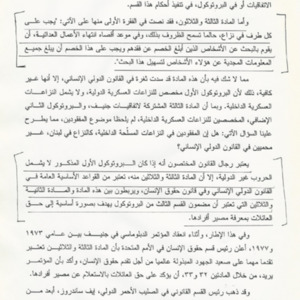 الاتفاقيات أو في البروتوكول، في تنفيذ أحكام هذا القسم.
وأما المادة الثالثة والثلاثون، فقد نصت في الفقرة الأولى منها على الآتي: "يجب على
كل طرف في نزاع، حالما تسمح الظروف بذلك، وفي موعد أقصاه انتهاء الأعمال العدائية، أن
يقوم بالبحث عن الأشخاص الذين أبلغ الخصم عن فقدهم ويجب على هذا الخصم أن يبلغ جميع
المعلومات المجدية عن هؤلاء الأشخاص لتسهيل هذا البحث".
مما لا شك فيه بأن هذه المادة قد سدت ثغرة في القانون الدولي الإنساني، إلا أنها غير
كافية، لأن البروتوكول الأول مخصص للنزاعات العسكرية الدولية، ولا يشمل النزاعات
العسكرية الداخلية. وبما أن المادة الثالثة المشتركة باتفاقيات جنيف، والبروتوكول الثاني
الإضافي، المخصصين للنزاعات العسكرية الداخلية، لم يلحظوا موضوع المفقودين، مما يطرح
علينا السؤال الآتي: هل إن المفقودين في النزاعات المسلحة الداخلية، كالنزاع في لبنان، غير
محميين في القانون الدولي الإنساني؟
يعتبر رجال القانون المختصون أنه إذا كان البروتوكول الأول المذكور لا يشمل
الحروب غير الدولية، إلا أن المادة الثالثة والثلاثين منه، تعتبر من القواعد الأساسية العامة في
القانون الدولي الإنساني وفي قانون حقوق الإنسان، ويربطون بين هذه المادة والمادة الثانية
والثلاثين التي تعتبر أن مضمون القسم الثالث من البروتوكول يهدف بصورة أساسية إلى حق
العائلات بمعرفة مصير أفرادها.
وفي هذا الإطار، وأثناء انعقاد المؤتمر الدبلوماسي في جنيف بين عامي ١٩٧٣
و١٩٧٧، أعلن رئيس قسم حقوق الإنسان في الأمم المتحدة بأن المادة الثالثة والثلاثين تعتبر
تقدما مهما على صعيد الجهود المبذولة عالميا من أجل احترام حقوق الإنسان، وأكد بأن المؤتمر
يريد، من خلال المادتين ٣٢ و٣٣، أن يؤكد على حق العائلات بالاستعلام عن مصير أفرادها.
وقد كتب رئيس القسم القانوني في الصليب الأحمر الدولي، إيف ساندروز، بعد